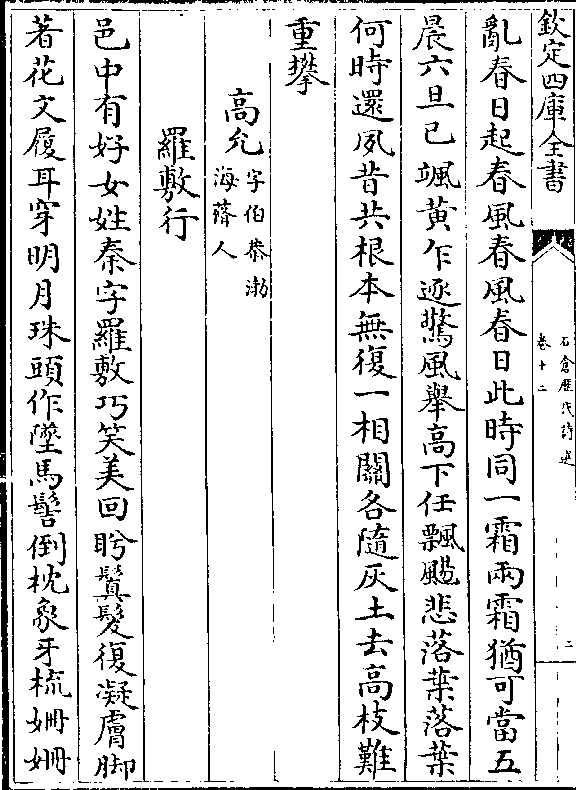 欽定四庫全書
石倉歷代詩選
卷十二
二
亂春日起春風春風春日此時同一霜兩霜猶可當五
晨六旦已颯黃乍逐驚風舉高下任飄颺悲落葉落葉
何時還夙昔共根本無復一相關各隨灰土去高枝難
重攀
高允
字伯恭渤
海蓨人
羅敷行
邑中有好女姓秦字羅敷巧笑美回盻鬒髮復凝膚脚
著花文履耳穿明月珠頭作墜馬髻倒枕象牙梳姍姍